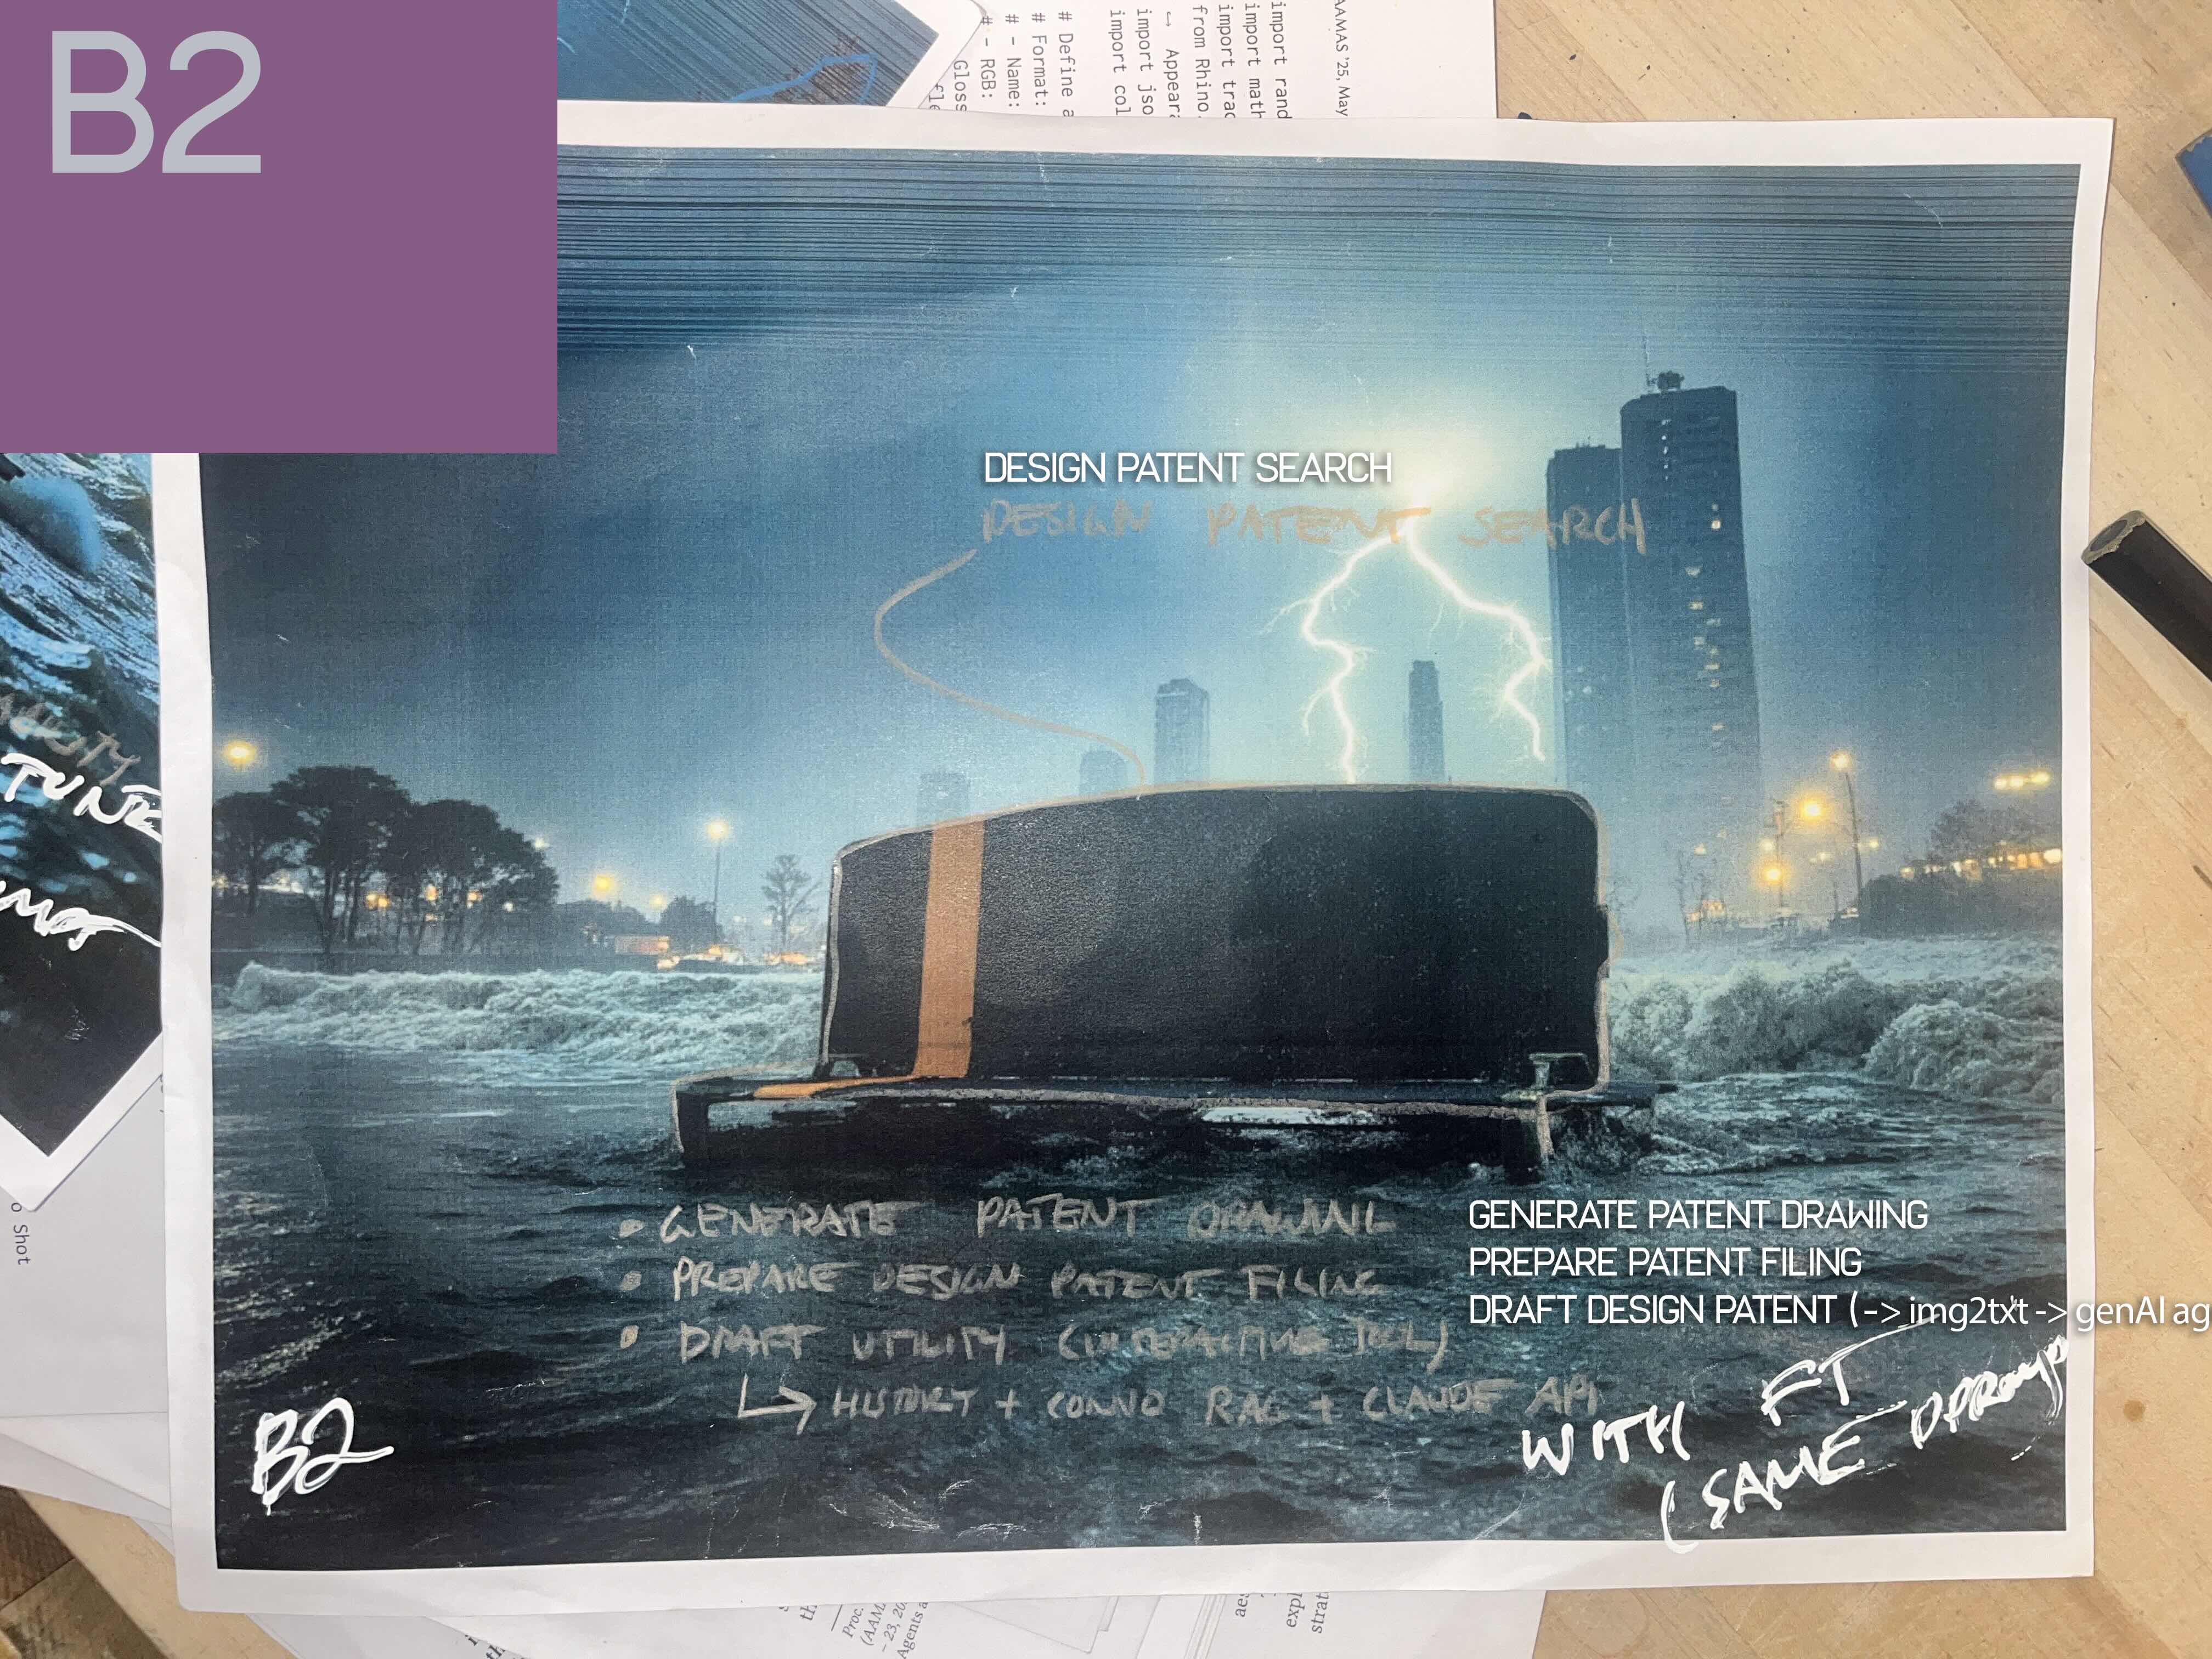 B2
AAMAS '25, May
import rand
import math
import trac
from Rhino.
↪ Appeara
import jso
import col
# Define a
# Format:
# - Name:
# - RGB:
Gloss
fle
DESIGN PATENT SEARCH
DESIGN PATENT SEARCH
TUNE
• GENERATE PATENT DRAWING
• PREPARE DESIGN PATENT FILING
• DRAFT UTILITY (INTERACTIVE TOOL)
↳ HISTORY + CONVO RAG + CLAUDE API
GENERATE PATENT DRAWING
PREPARE PATENT FILING
DRAFT DESIGN PATENT (-> img2txt -> genAI ag
WITH FT
(SAME
B2
o Shot
Proc.
(AAMA
– 23, 20
Agents a
aes
expl
strat